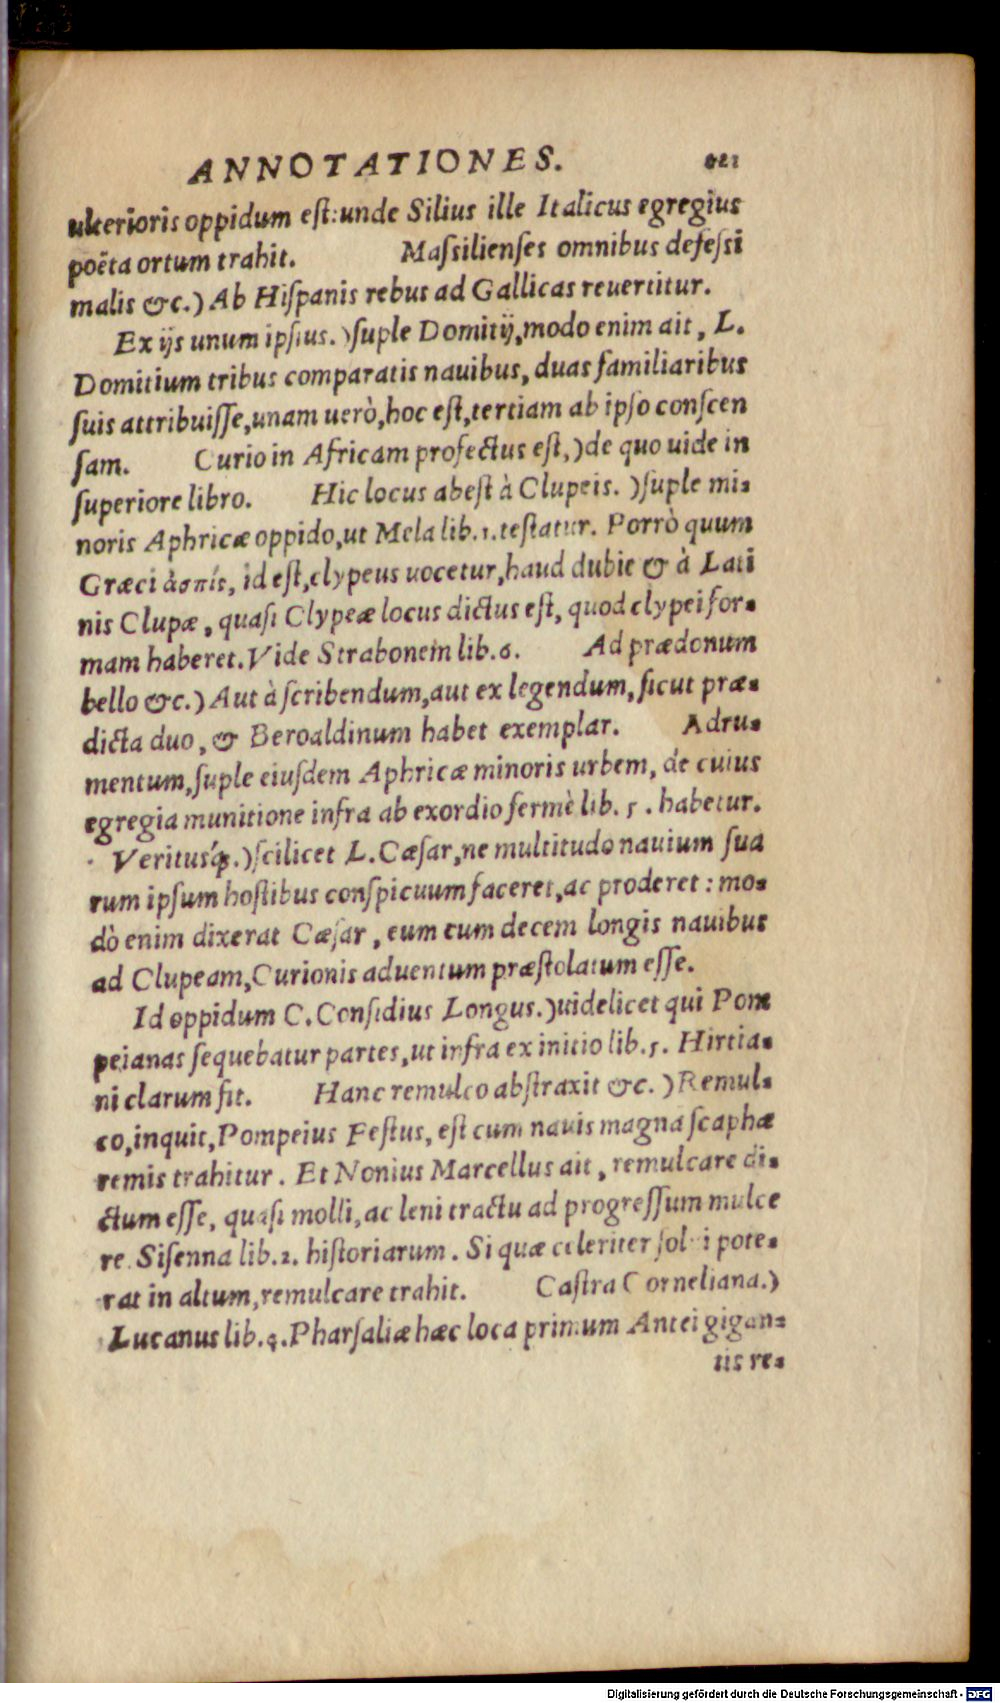 ANNOTATIONES.
ulterioris oppidum eſt: unde Silius ille Italicus egregius
poëta ortum trahit. Maſsilienſes omnibus defeſsi
malis &c.) Ab Hiſpanis rebus ad Gallicas reuertitur.
Ex ijs unum ipſius.) ſuple Domitij, modo enim ait, L.
Domitium tribus comparatis nauibus, duas familiaribus
ſuis attribuiſſe, unam uerò, hoc eſt, tertiam ab ipſo conſcen
ſam. Curio in Africam profectus eſt,) de quo uide in
ſuperiore libro. Hic locus abeſt à Clupeis.) ſuple mi=
noris Aphricæ oppido, ut Mela lib. 1. teſtatur. Porrò quum
Græci ἀσπὶς, id eſt, clypeus uocetur, haud dubie & à Lati
nis Clupæ, quaſi Clypeæ locus dictus eſt, quod clypei for=
mam haberet. Vide Strabonem lib. 6. Ad prædonum
bello &c.) Aut à ſcribendum, aut ex legendum, ſicut præ=
dicta duo, & Beroaldinum habet exemplar. Adru=
mentum, ſuple eiuſdem Aphricæ minoris urbem, de cuius
egregia munitione infra ab exordio fermè lib. 5. habetur.
Veritusq́;.) ſcilicet L. Cæſar, ne multitudo nauium ſua
rum ipſum hoſtibus conſpicuum faceret, ac proderet: mo=
dò enim dixerat Cæſar, eum cum decem longis nauibus
ad Clupeam, Curionis aduentum præſtolatum eſſe.
Id oppidum C. Conſidius Longus.) uidelicet qui Pom
peianas ſequebatur partes, ut infra ex initio lib. 5. Hirtia=
ni clarum fit. Hanc remulco abſtraxit &c.) Remul=
co, inquit, Pompeius Feſtus, eſt cum nauis magna ſcaphæ
remis trahitur. Et Nonius Marcellus ait, remulcare di=
ctum eſſe, quaſi molli, ac leni tractu ad progreſſum mulce
re. Siſenna lib. 2. hiſtoriarum. Si quæ celeriter ſol i pote=
rat in altum, remulcare trahit. Caſtra Corneliana.)
Lucanus lib. 4. Pharſaliæ hæc loca primum Antei gigan=
tis re=
Digitalisierung gefördert durch die Deutsche Forschungsgemeinschaft - DFG